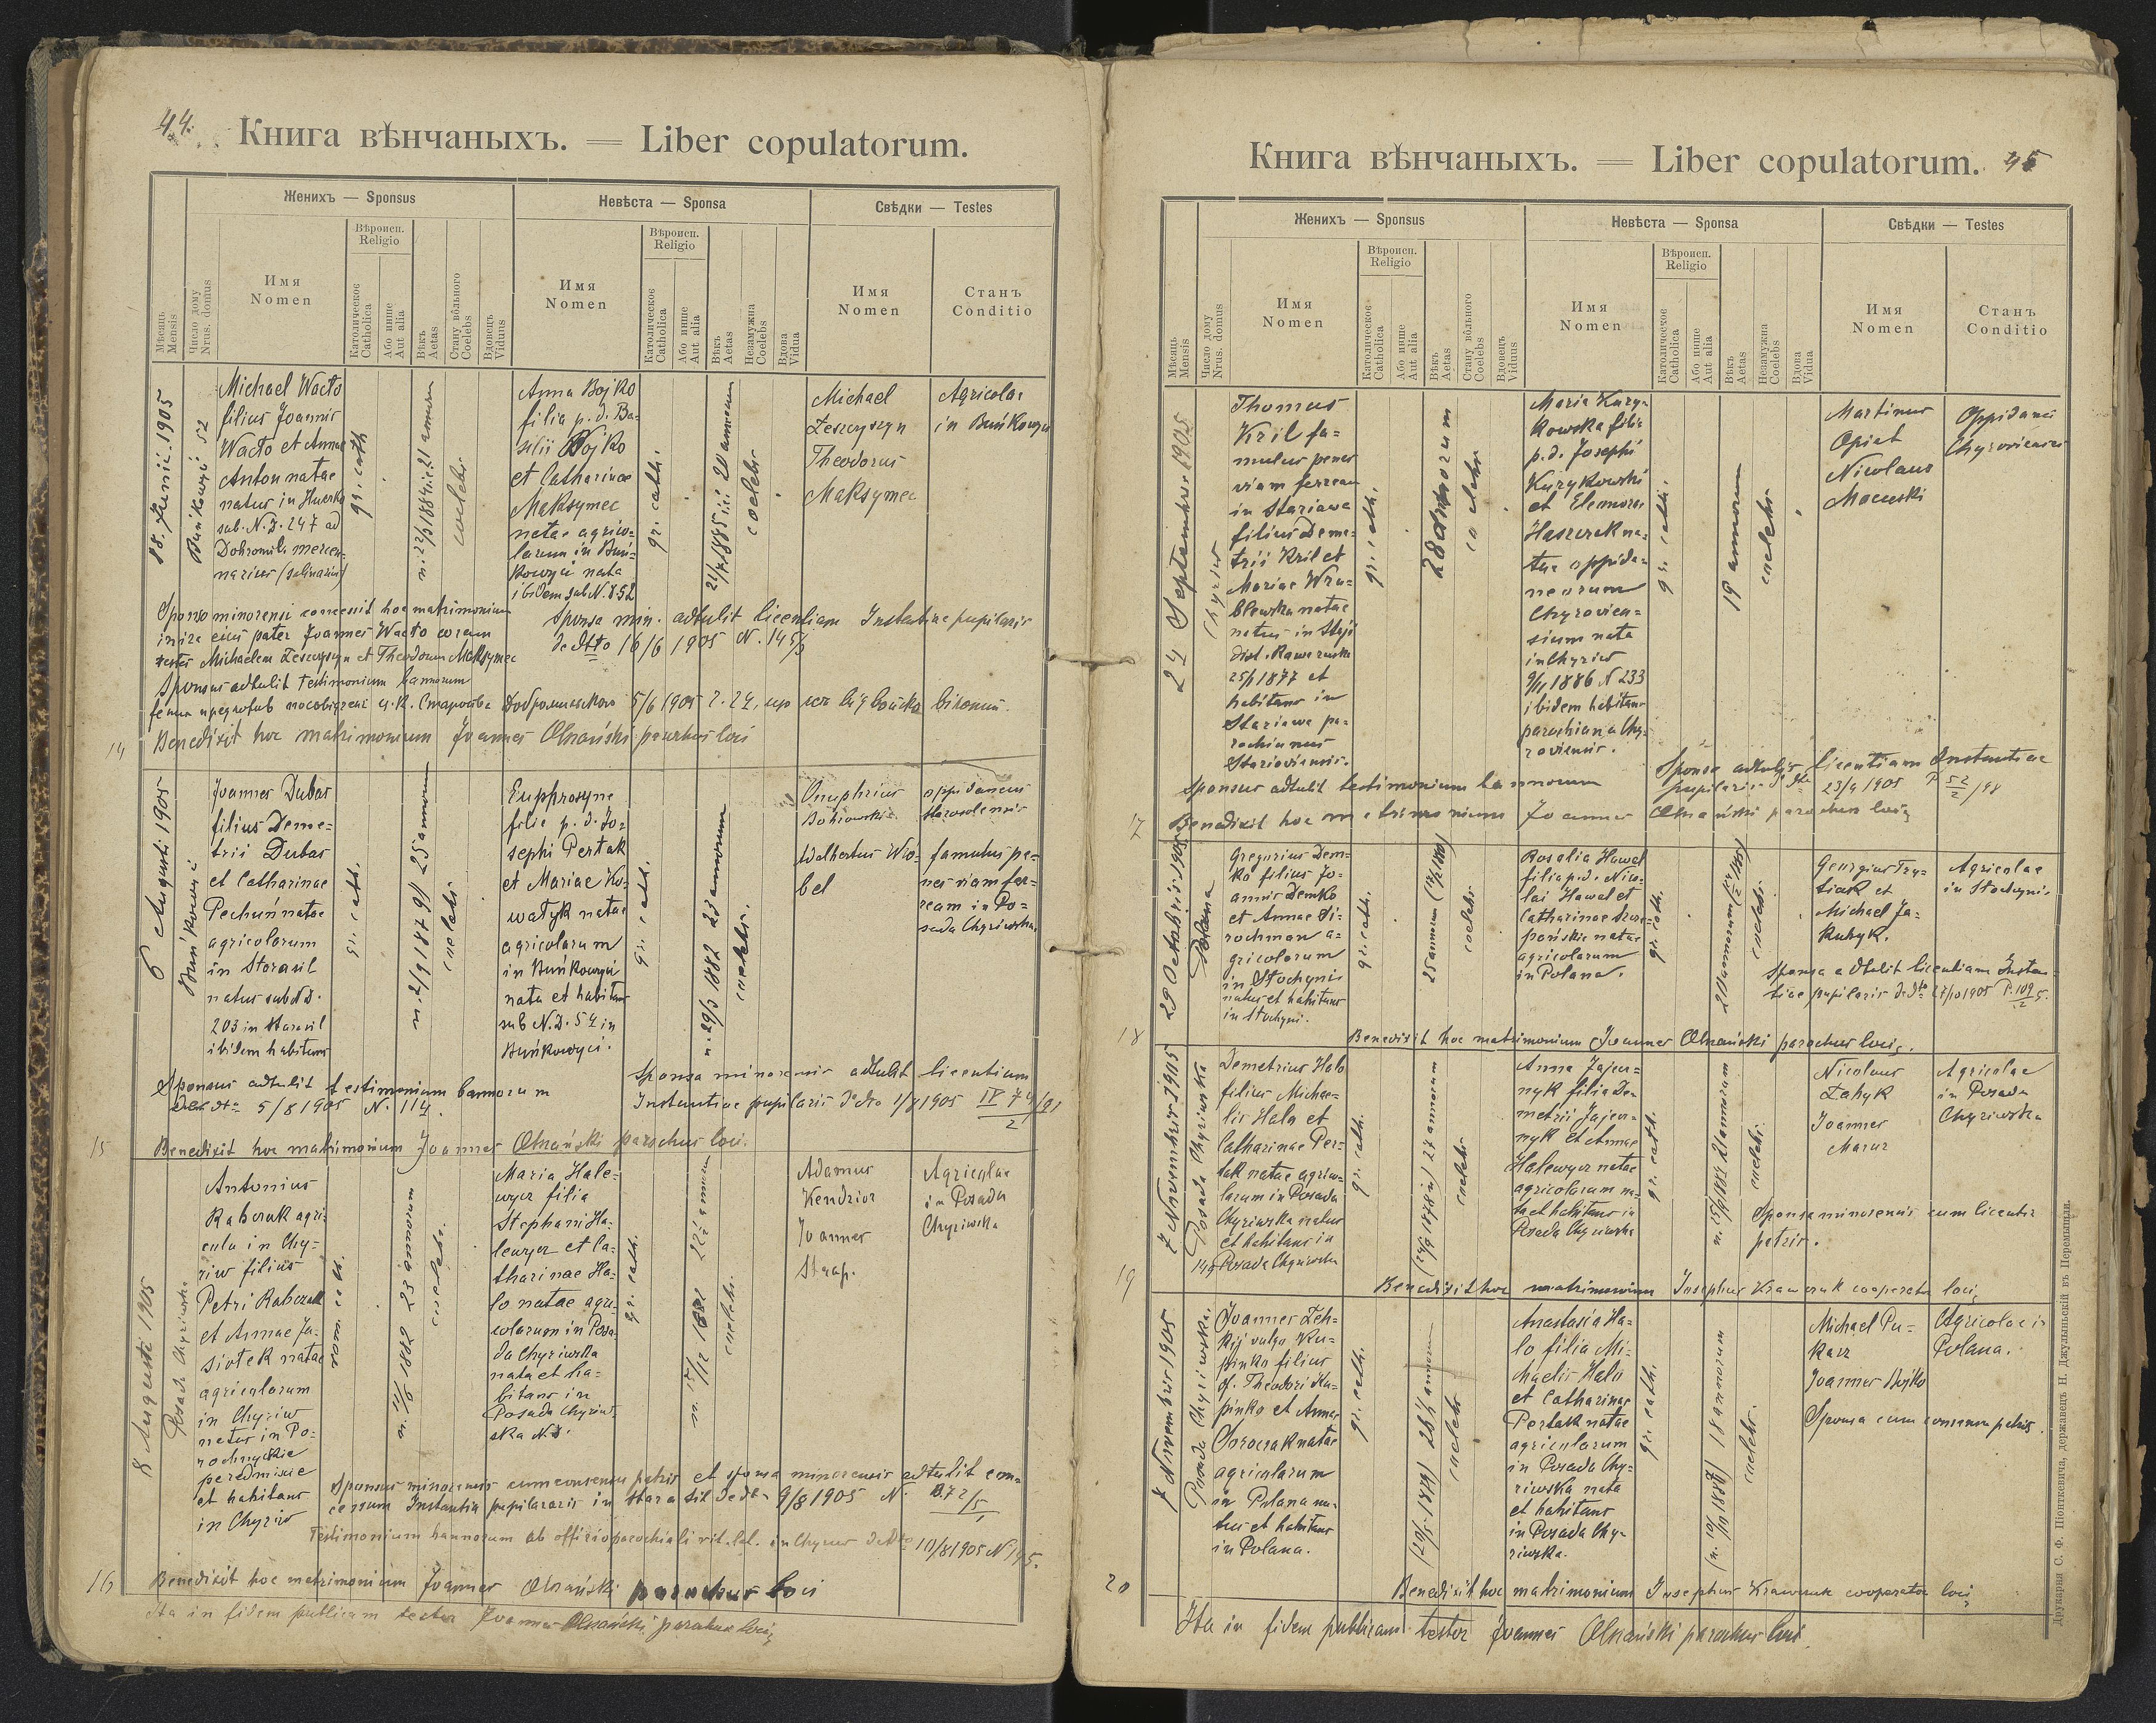 44.
Книга вѣнчаныхъ. = Liber copulatorum.
Женихъ — Sponsus
Невѣста — Sponsa
Свѣдки — Testes
Мѣсяць Mensis
Число дому Nrus. domus
Имя Nomen
Вѣроисп. Religio
Католическое Catholica
Або инше Aut alia
Вѣкъ Aetas
Стану вôльного Coelebs
Вдовецъ Viduus
Имя Nomen
Вѣроисп. Religio
Католическое Catholica
Або инше Aut alia
Вѣкъ Aetas
Незамужна Coelebs
Вдова Vidua
Имя Nomen
Станъ Conditio
18. Junii. 1905
Buńkowyci 52
Michael Wacto
filius Joannis
Wacto et Annae
Anton natae
natus in Huerko
sub. N. D. 247 ad
Dobromil. mercen-
narius (salinarius)
gr. cath
coelebs
Anna Bojko
filia p. d. Ba-
silii Bojko
et Catharinae
Maksymec
natae agrico-
larum in Buń-
kowyci nata
ibidem sub N. 852
gr. cath.
coelebs
Michael
Leszczyszyn
Theodorus
Maksymec
Agricolae
in Buńkowyci
Sponso minorenni concessit hoc matrimonium
inire eius pater Joannes Wacto coram
testes Michaelem Leszczyszyn et Theodorum Maksymec
Sponsus adtulit testimonium bannorum
Sponsa min. adtulit licentiam Instantiae pupilaris
de dtto 16/6 1905 N. 145/5
14
Benedixit hoc matrimonium Joannes Olnański parochus loci
6 Augusti 1905
Buńkowyci
Joannes Dubas
filius Deme-
trii Dubas
et Catharinae
Pechuń natae
agricolarum
in Starasil
natus sub N D.
203 in Starasil
ibidem habitans
gr. cath.
n. 2/9 1879 25 annorum
coelebs
Euphrosyne
filia p. d. Jo-
sephi Pertak
et Mariae Ko-
watyk natae
agricolarum
in Buńkowyci
nata et habitans
sub N. D. 54 in
Buńkowyci.
gr. cath.
n. 29/3 1882 23 annorum
coelebs.
Onuphrius
Adalbertus Wro-
bel
oppidaneus
starosolensis
famulus pe-
nes viam fer-
ream in Po-
sada Chyriwska.
Sponsus adtulit testimonium bannorum
de dto 5/8 1905 N. 114.
Sponsa minorennis adtulit licentiam
Instantiae pupilaris de dto 1/8 1905 IV 74/2/91
15
Benedixit hoc matrimonium Joannes Olnański parochus loci.
8 Augusti 1905
Posada Chyriwska
Antonius
Rabczak agri-
cola in Chy-
riw filius
Petri Rabczak
et Annae Ja-
siotek natae
agricolarum
in Chyriw
natus in Po-
rochnyckie
peredmiscie
et habitans
in Chyriw
coelebs.
Maria Hale-
wycz filia
Stephani Ha-
lewycz et Ca-
tharinae Ha-
lo natae agri-
colarum in Posa-
da Chyriwska
nata et ha-
bitans in
Posada Chyriw-
ska N D.
gr. cath.
coelebs.
Adamus
Kendzior
Joannes
Strap.
Agricolae
in Posada
Chyriwska
Sponsus minorennis cum consensu patris et sponsa minorennis adtulit con-
cessum Instantia pupilararis in Stara Sil de dto 9/8 1905 N. P. 72/5
Testimonium bannorum ab officio parochiali rit. lat. in Chyrow de dto 10/8 1905 N 195.
16
Benedixit hoc matrimonium Joannes Olnański parochus loci
Ita in fidem publicam testor Joannes Olnański parochus loci
Книга вѣнчаныхъ. = Liber copulatorum.
45
Женихъ — Sponsus
Невѣста — Sponsa
Свѣдки — Testes
Мѣсяць Mensis
Число дому Nrus. domus
Имя Nomen
Вѣроисп. Religio
Католическое Catholica
Або инше Aut alia
Вѣкъ Aetas
Стану вôльного Coelebs
Вдовецъ Viduus
Имя Nomen
Вѣроисп. Religio
Католическое Catholica
Або инше Aut alia
Вѣкъ Aetas
Незамужна Coelebs
Вдова Vidua
Имя Nomen
Станъ Conditio
24 Septembris 1905
Chyriw
Thomas
Kril fa-
mulus penes
viam ferream
in Stariawa
filius Deme-
trii Kril et
Mariae Wru-
blewska natae
natus in Staji
dist. Rawa ruska
25/1 1877 et
habitans in
Stariawa pa-
rochianus
Stariaviensis.
gr. cath.
28 annorum
coelebs
Maria Kury-
kowska filia
p. d. Josephi
Kurykowski
et Eleonorae
Haszczak na-
tae oppida-
neorum
Chyrovien-
sium nata
in Chyriw
9/11 1886 N 233
ibidem habitans
parochiana Chy-
roviensis.
gr. cath.
19 annorum
coelebs.
Martinus
Opiat
Nicolaus
Macuski
Oppidanei
Chyrovienses
Sponsus adtulit testimonium bannorum
Sponsa adtulit licentiam Instantiae
pupilaris d dto 23/9 1905 P 52/2/98
17
Benedixit hoc matrimonium Joannes Olnański parochus loci
29 Octobris 1905
Polana
Gregorius Dem-
ko filius Jo-
annis Demko
et Annae Di-
rochman a-
gricolarum
in Stochynie
natus et habitans
in Stochyni.
gr. cath.
coelebs.
Rosalia Hawal
filia p. d. Nico-
lai Hawal et
Catharinae Szcze-
pańskie natae
agricolarum
in Polana.
gr. cath.
coelebs.
Georgius Try-
tiak et
Michael Ja-
kubyk.
Agricolae
in Stochyni.
Sponsa adtulit licentiam Instan-
tiae pupilaris de dto 27/10 1905 P. 109/2 5.
18
Benedixit hoc matrimonium Joannes Olnański parochus loci.
7 Novembris 1905
Posada Chyriwska
149
Demetrius Halo
filius Michae-
lis Halo et
Catharinae Per-
tak natae agrico-
larum in Posada
Chyriwska natus
et habitans in
Posada Chyriwska
gr. cath.
coelebs
Anna Jajec-
nyk filia De-
metrii Jajec-
nyk et Annae
Halewycz natae
agricolarum na-
ta et habitans in
Posada Chyriwska
gr. cath.
coelebs.
Nicolaus
Zahyk
Joannes
Mazur
Agricolae
in Posada
Chyriwska
Sponsa minorennis cum licentia
patris.
19
Benedixit hoc matrimonium Josephus Krawczuk cooperator loci
7 Novembris 1905
Posada Chyriwska.
Joannes Zeh-
kij vulgo Ku-
pinko filius
p. Theodori Ku-
pinko et Annae
Soroczak natae
agricolarum
in Polana na-
tus et habitans
in Polana.
gr. cath.
coelebs
Anastasia Ha-
lo filia Mi-
chaelis Halo
et Catharinae
Pertak natae
agricolarum
in Posada Chy-
riwska nata
et habitans
in Posada Chy-
riwska.
gr. cath.
18 annorum
coelebs.
Michael Pu-
karz
Joannes Bojko
Agricolae in
Polana.
Sponsa cum consensu patris.
20
Benedixit hoc matrimonium Josephus Krawczuk cooperator loci
Ita in fidem publicam testor Joannes Olnański parochus loci.
Друкарня С. Ф. Піонткевича, державецъ Н. Джулыньскій въ Перемышли.